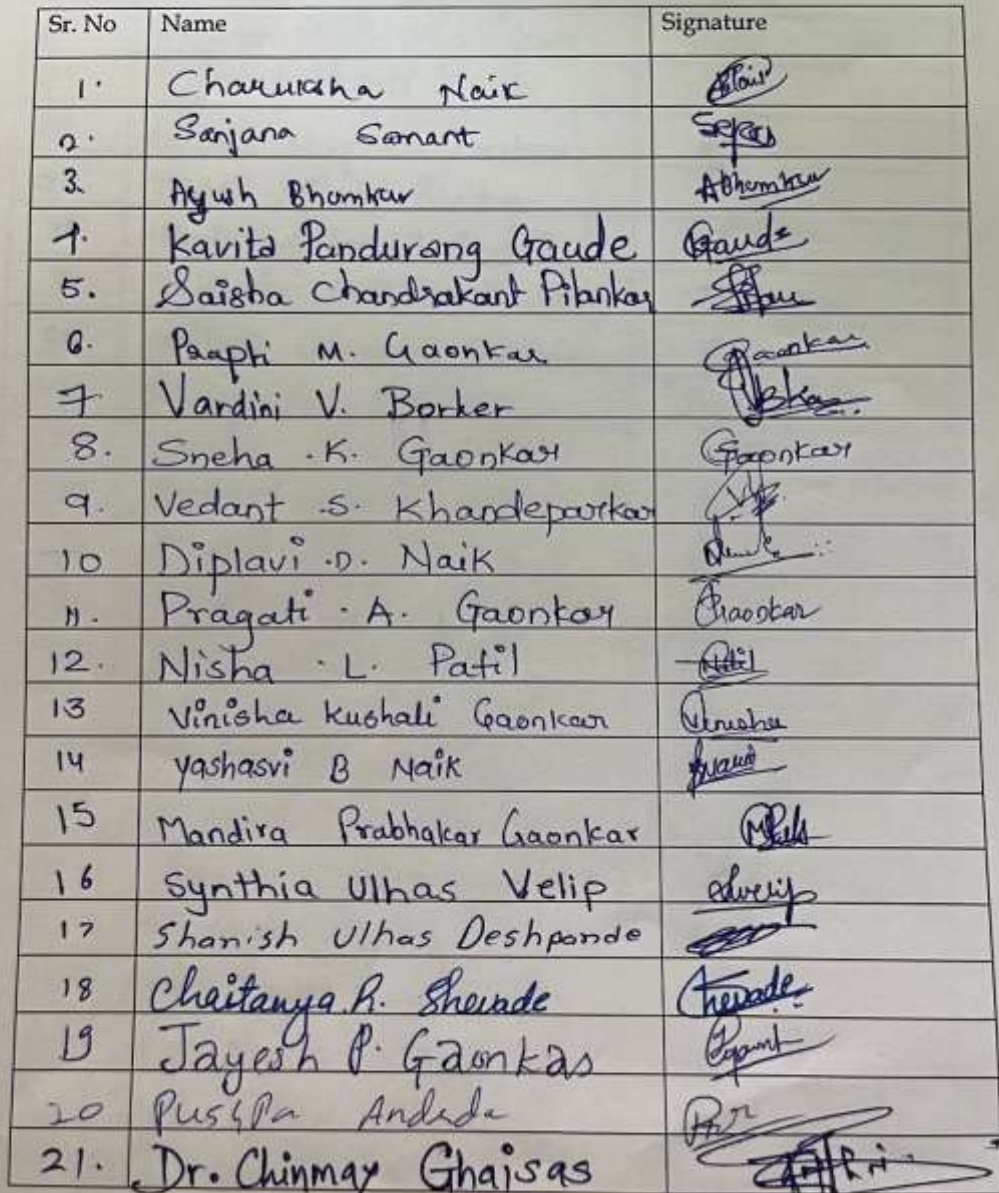 Sr. No Name Signature
1. Charuksha Naik
2. Sanjana Samant
3. Ayush Bhomkar ABhomkar
4. Kavita Pandurang Gaude Gaude
5. Saisha Chandrakant Pilankar
6. Praapti M. Gaonkar Gaonkar
7 Vardini V. Borker
8. Sneha .K. Gaonkar Gaonkar
9. Vedant .S. Khandeparkar
10 Diplavi .D. Naik
11. Pragati . A. Gaonkar Gaonkar
12. Nisha . L. Patil Patil
13 Vinisha Kushali Gaonkar Vinisha
14 Yashasvi B Naik
15 Mandira Prabhakar Gaonkar
16 Synthia Ulhas Velip
17 Shanish Ulhas Deshpande
18 Chaitanya R. Shevade
19 Jayesh P. Gaonkas
20 Pushpa
21. Dr. Chinmay Ghaisas